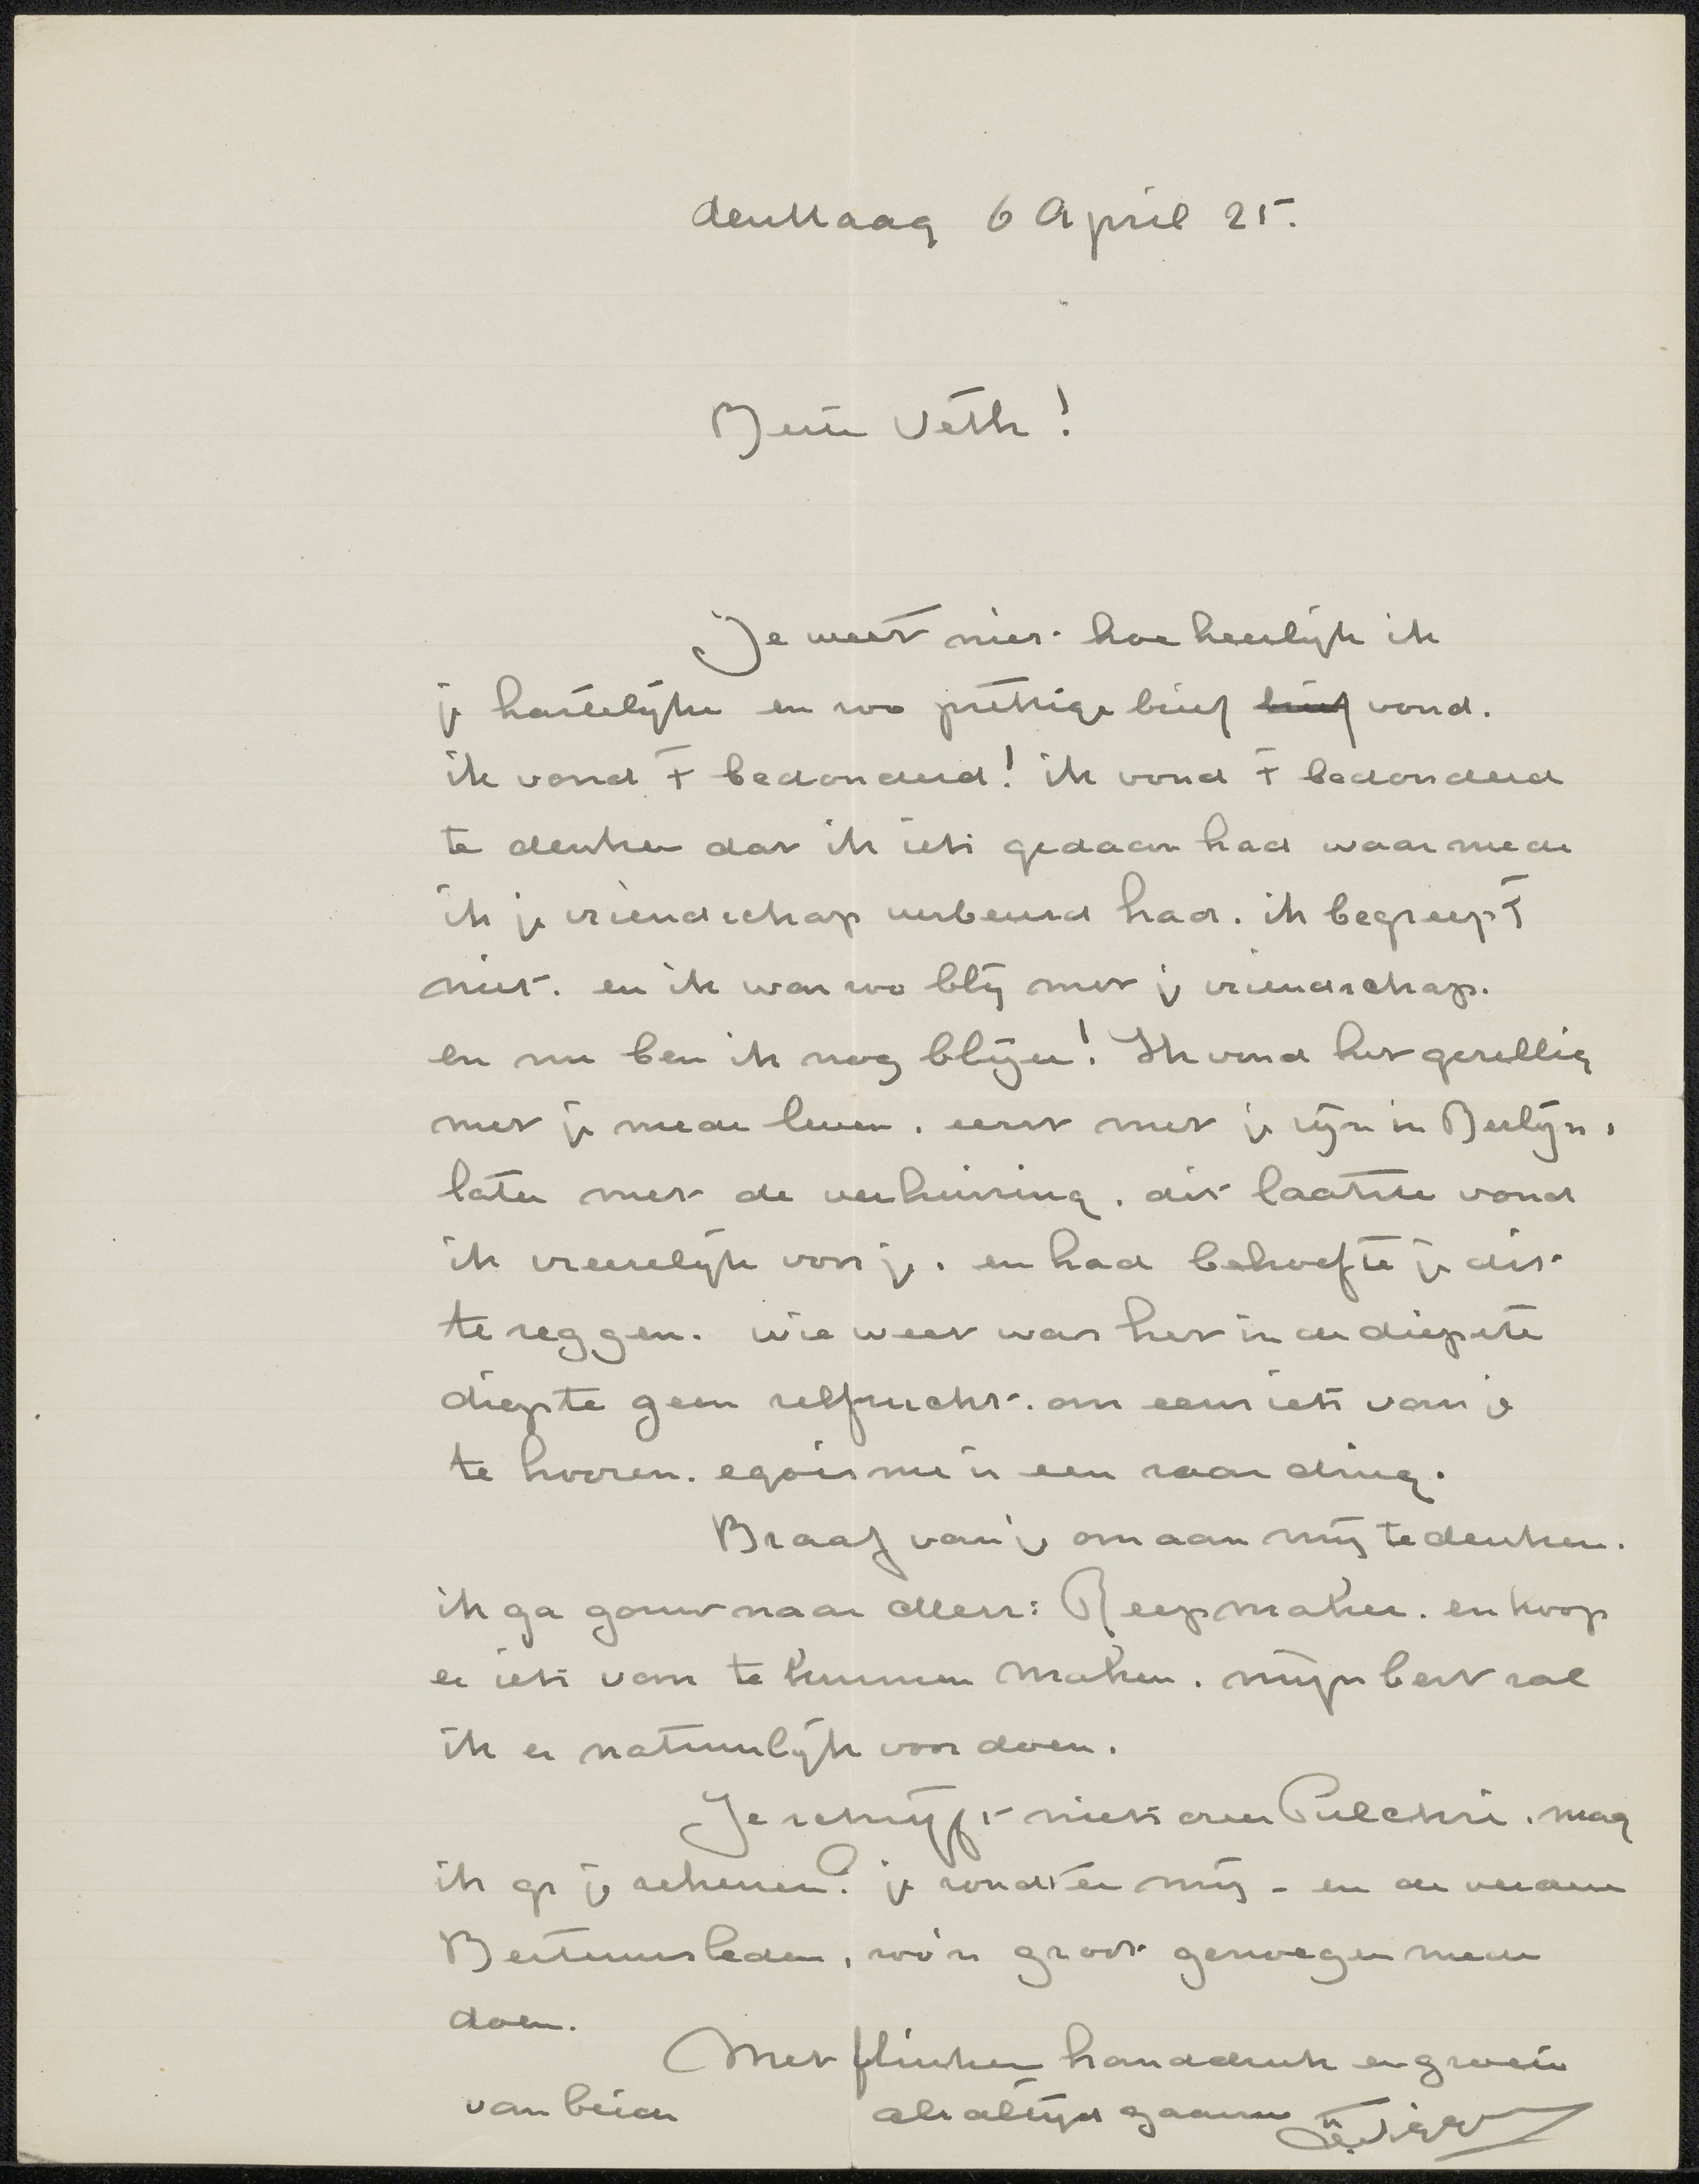 den Haag 6 April 25.
Beste Veth!
Je weet niet hoe heerlijk ik
je hartelijke en zoo prettige brief brief vond.
ik vond 't bedonderd! ik vond 't bedonderd
te denken dat ik iets gedaan had waarmede
ik je vriendschap verbeurd had. ik begreep 't
niet. en ik was zoo blij met je vriendschap.
en nu ben ik nog blijer! Ik vond het gezellig
met je mede leven. eerst met je zijn in Berlijn,
later met de verhuizing. dit laatste vond
ik vreeselijk voor je. en had behoefte je dit
te zeggen. wie weet was het in de diepste
diepte geen zelfzucht. om eens iets van je
te hooren. egoisme is een raar ding.
Braaf van je om aan mij te denken.
ik ga gauw naar Mevr: Reepmaker. en hoop
er iets van te kunnen maken. mijn best zal
ik er natuurlijk voor doen.
Je schrijft niets over Pulchri. mag
ik op je rekenen? je zoudt er mij - en de verdere
Bestuursleden, zoo'n groot genoegen mede
doen.
Met flinken handdruk en groeten
van beiden als altijd gaarne